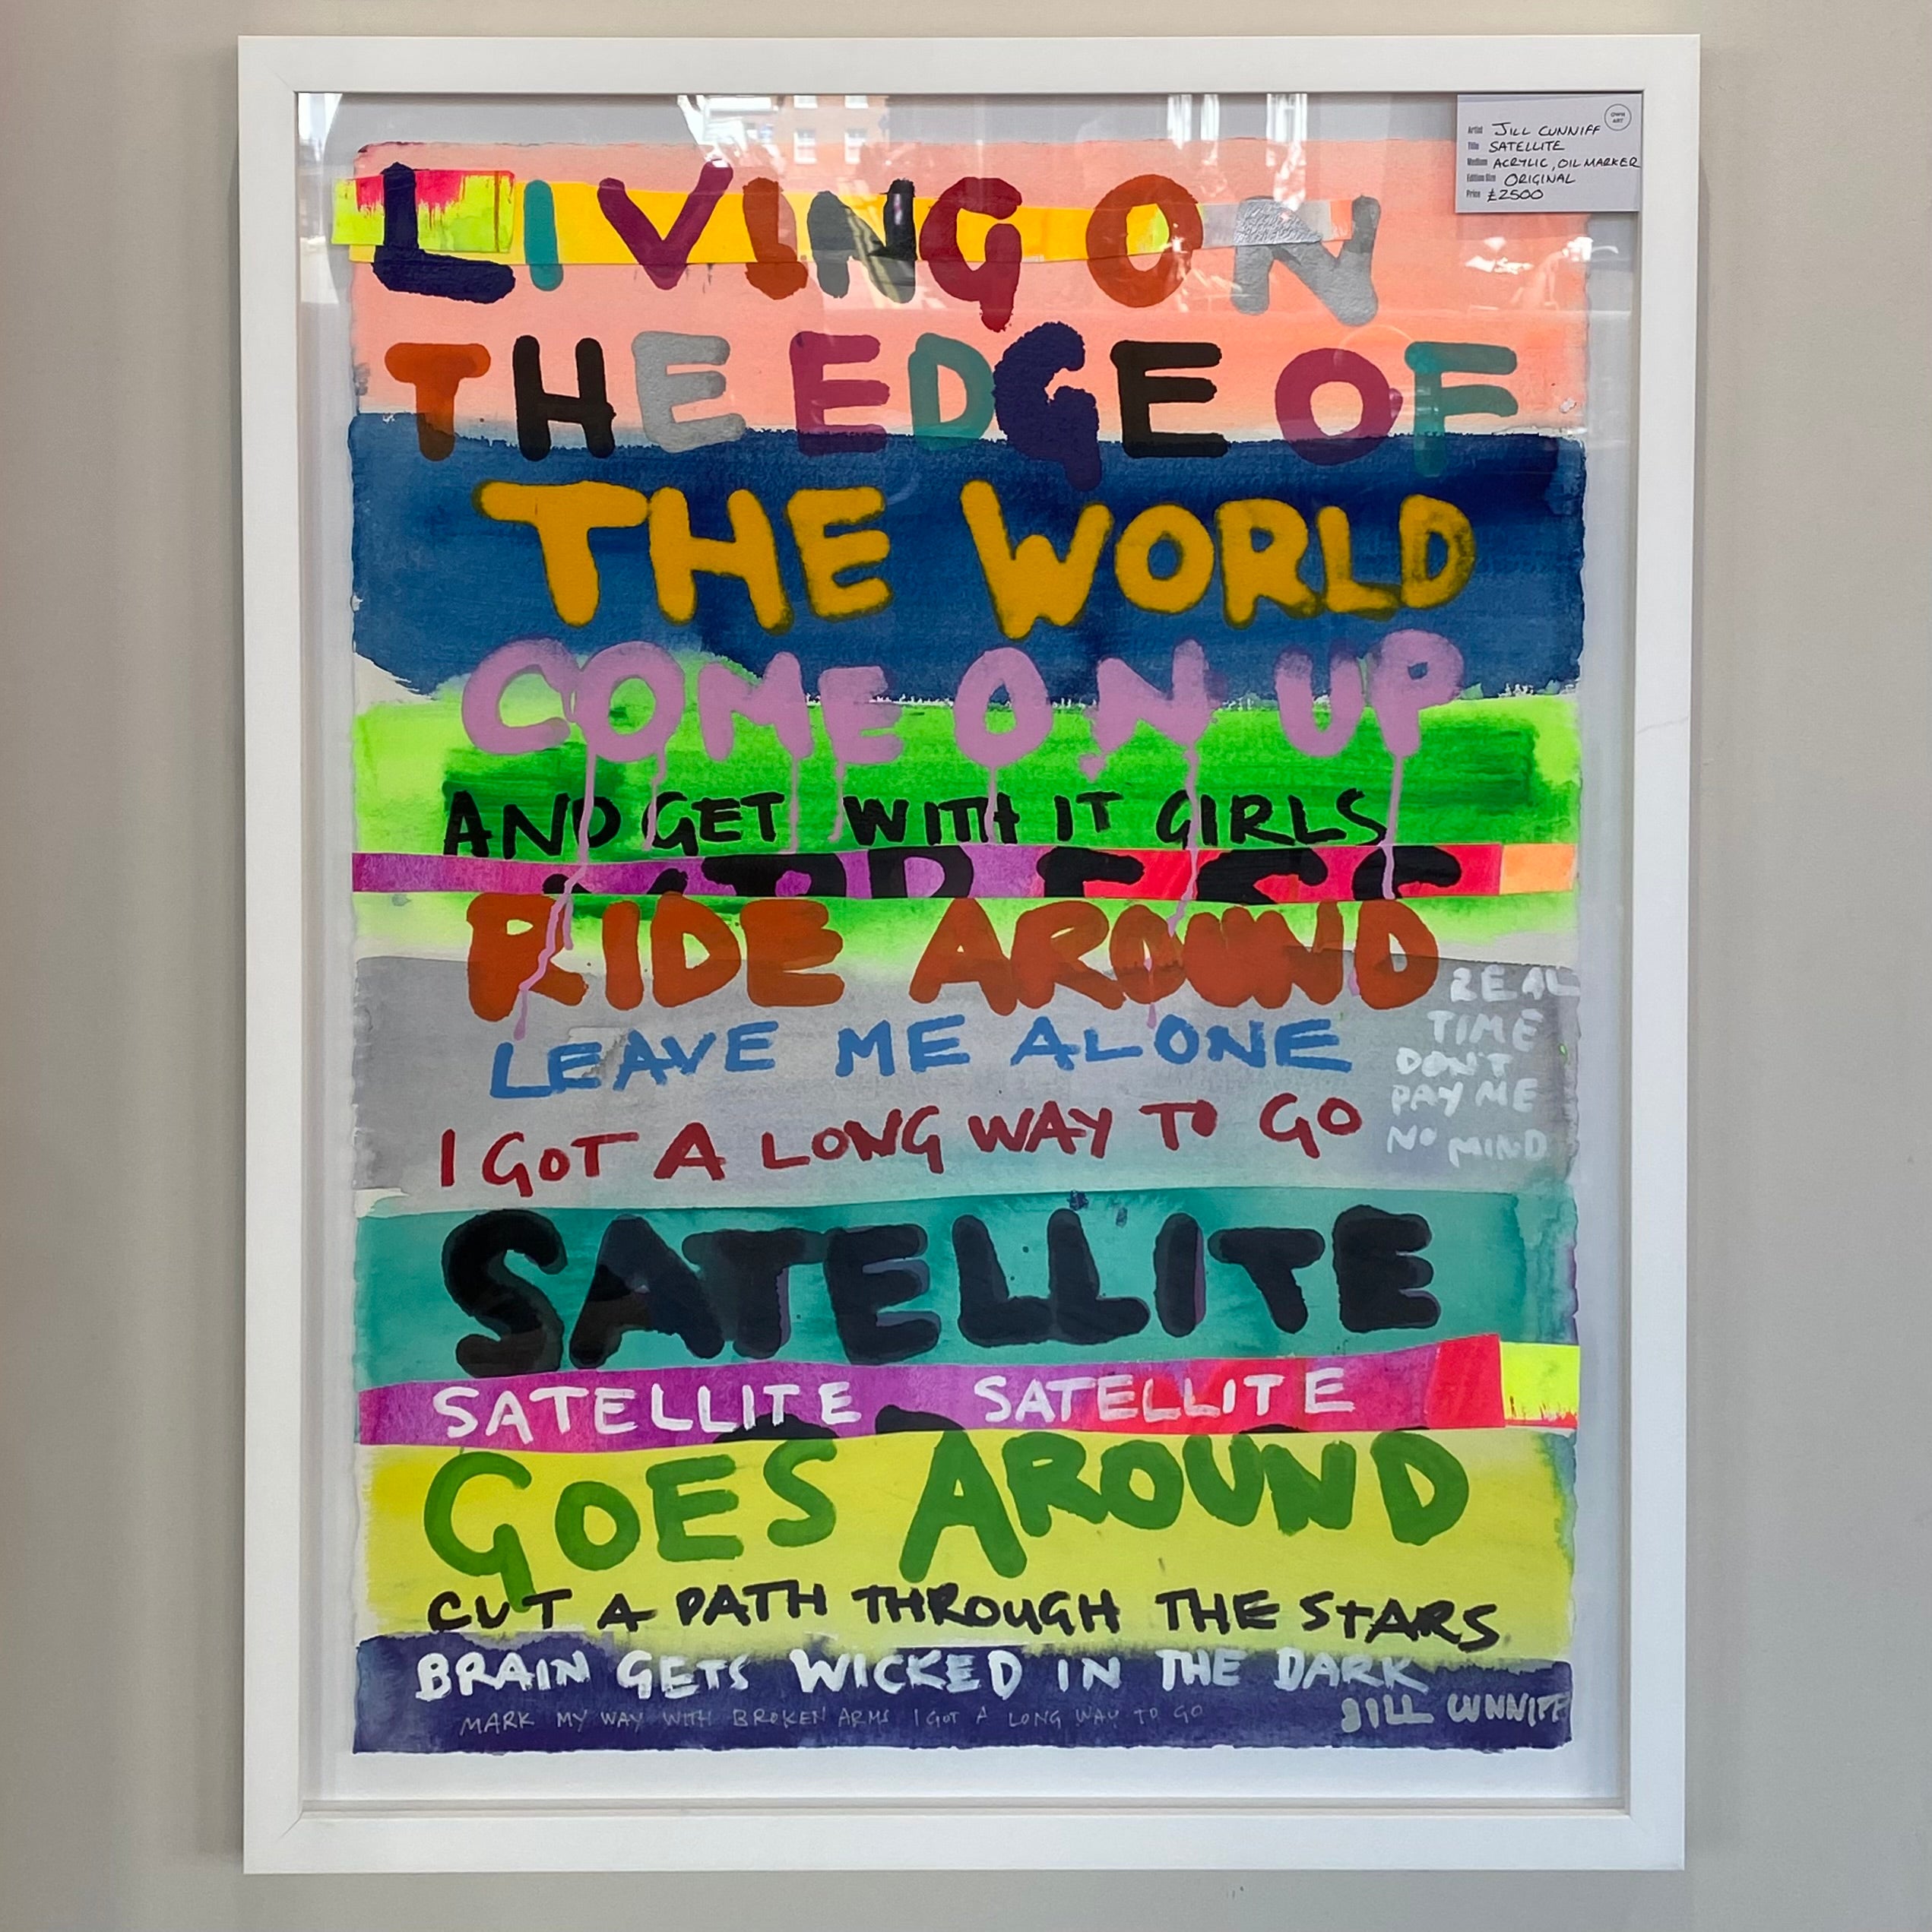 LIVING ON
THE EDGE OF
THE WORLD
COME ON UP
AND GET WITH IT GIRLS
RIDE AROUND
LEAVE ME ALONE
I GOT A LONG WAY TO GO
REAL
TIME
DON'T
PAY ME
NO MIND
SATELLITE
SATELLITE SATELLITE
GOES AROUND
CUT A PATH THROUGH THE STARS
BRAIN GETS WICKED IN THE DARK
MARK MY WAY WITH BROKEN ARMS I GOT A LONG WAY TO GO
JILL CUNNIFF
OWN ART
Artist JILL CUNNIFF
Title SATELLITE
Medium ACRYLIC, OIL MARKER
Edition Size ORIGINAL
Price £2500